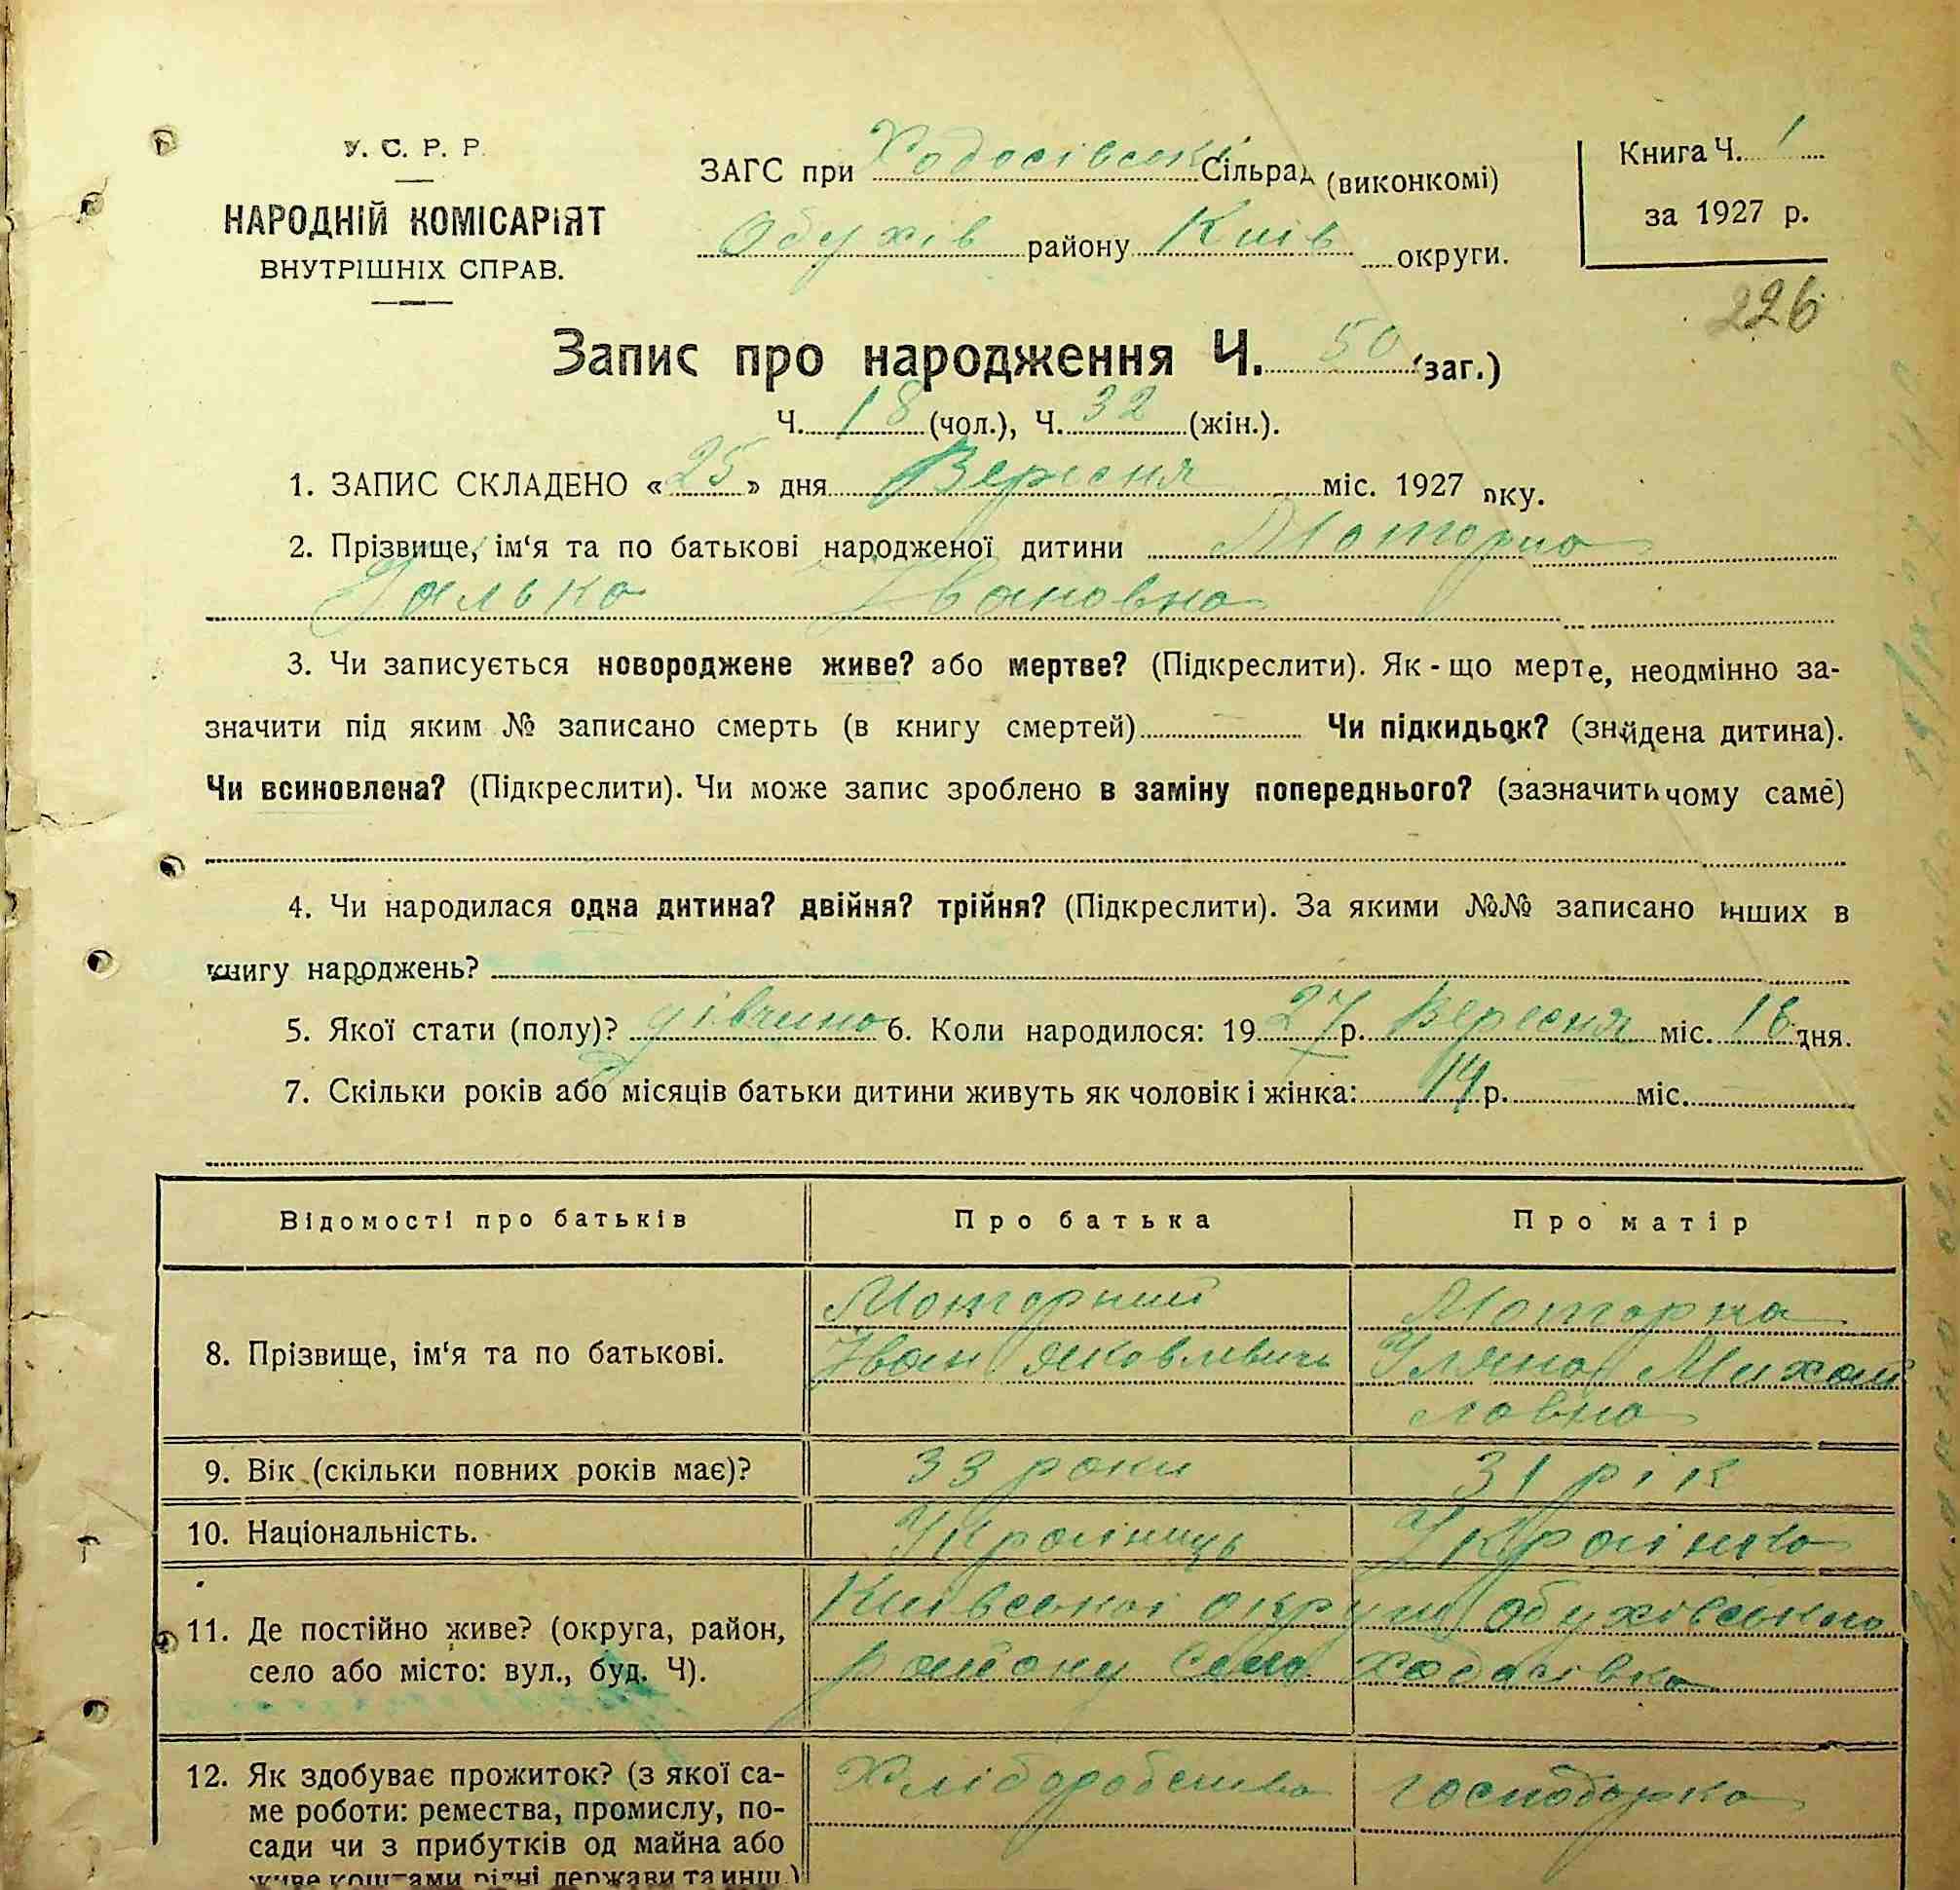 У. С. Р. Р.
НАРОДНІЙ КОМІСАРІЯТ
ВНУТРІШНІХ СПРАВ.
ЗАГС при Ходосівські Сільрад (виконкомі)
Обухів району Київ округи.
Книга Ч. 1
за 1927 р.
226
Запис про народження Ч. 50 (заг.)
Ч. 18 (чол.), Ч. 32 (жін.).
1. ЗАПИС СКЛАДЕНО «25» дня Вересня міс. 1927 року.
2. Прізвище, ім‘я та по батькові народженої дитини Моторна
Галька Івановна
3. Чи записується новороджене живе? або мертве? (Підкреслити). Як-що мерте, неодмінно за-
значити під яким № записано смерть (в книгу смертей) Чи підкидьок? (знайдена дитина).
Чи всиновлена? (Підкреслити). Чи може запис зроблено в заміну попереднього? (зазначити чому саме)
4. Чи народилася одна дитина? двійня? трійня? (Підкреслити). За якими №№ записано інших в
книгу народжень?
5. Якої стати (полу)? дівчина 6. Коли народилося: 1927 р. Вересня міс. 16 дня.
7. Скільки років або місяців батьки дитини живуть як чоловік і жінка: 14 р. міс.
Відомості про батьків Про батька Про матір
8. Прізвище, ім‘я та по батькові.
Моторний
Іван Яковлевичь
Моторна
Уляна Михай
ловна
9. Вік (скільки повних років має)? 33 роки 31 рік
10. Національність. Українець Українка
11. Де постійно живе? (округа, район,
село або місто: вул., буд. Ч).
Київської округи Обухівського
району село Ходосівка
12. Як здобуває прожиток? (з якої са-
ме роботи: ремества, промислу, по-
сади чи з прибутків од майна або
живе коштами рідні держави та инш.)
Хліборобство
господарка